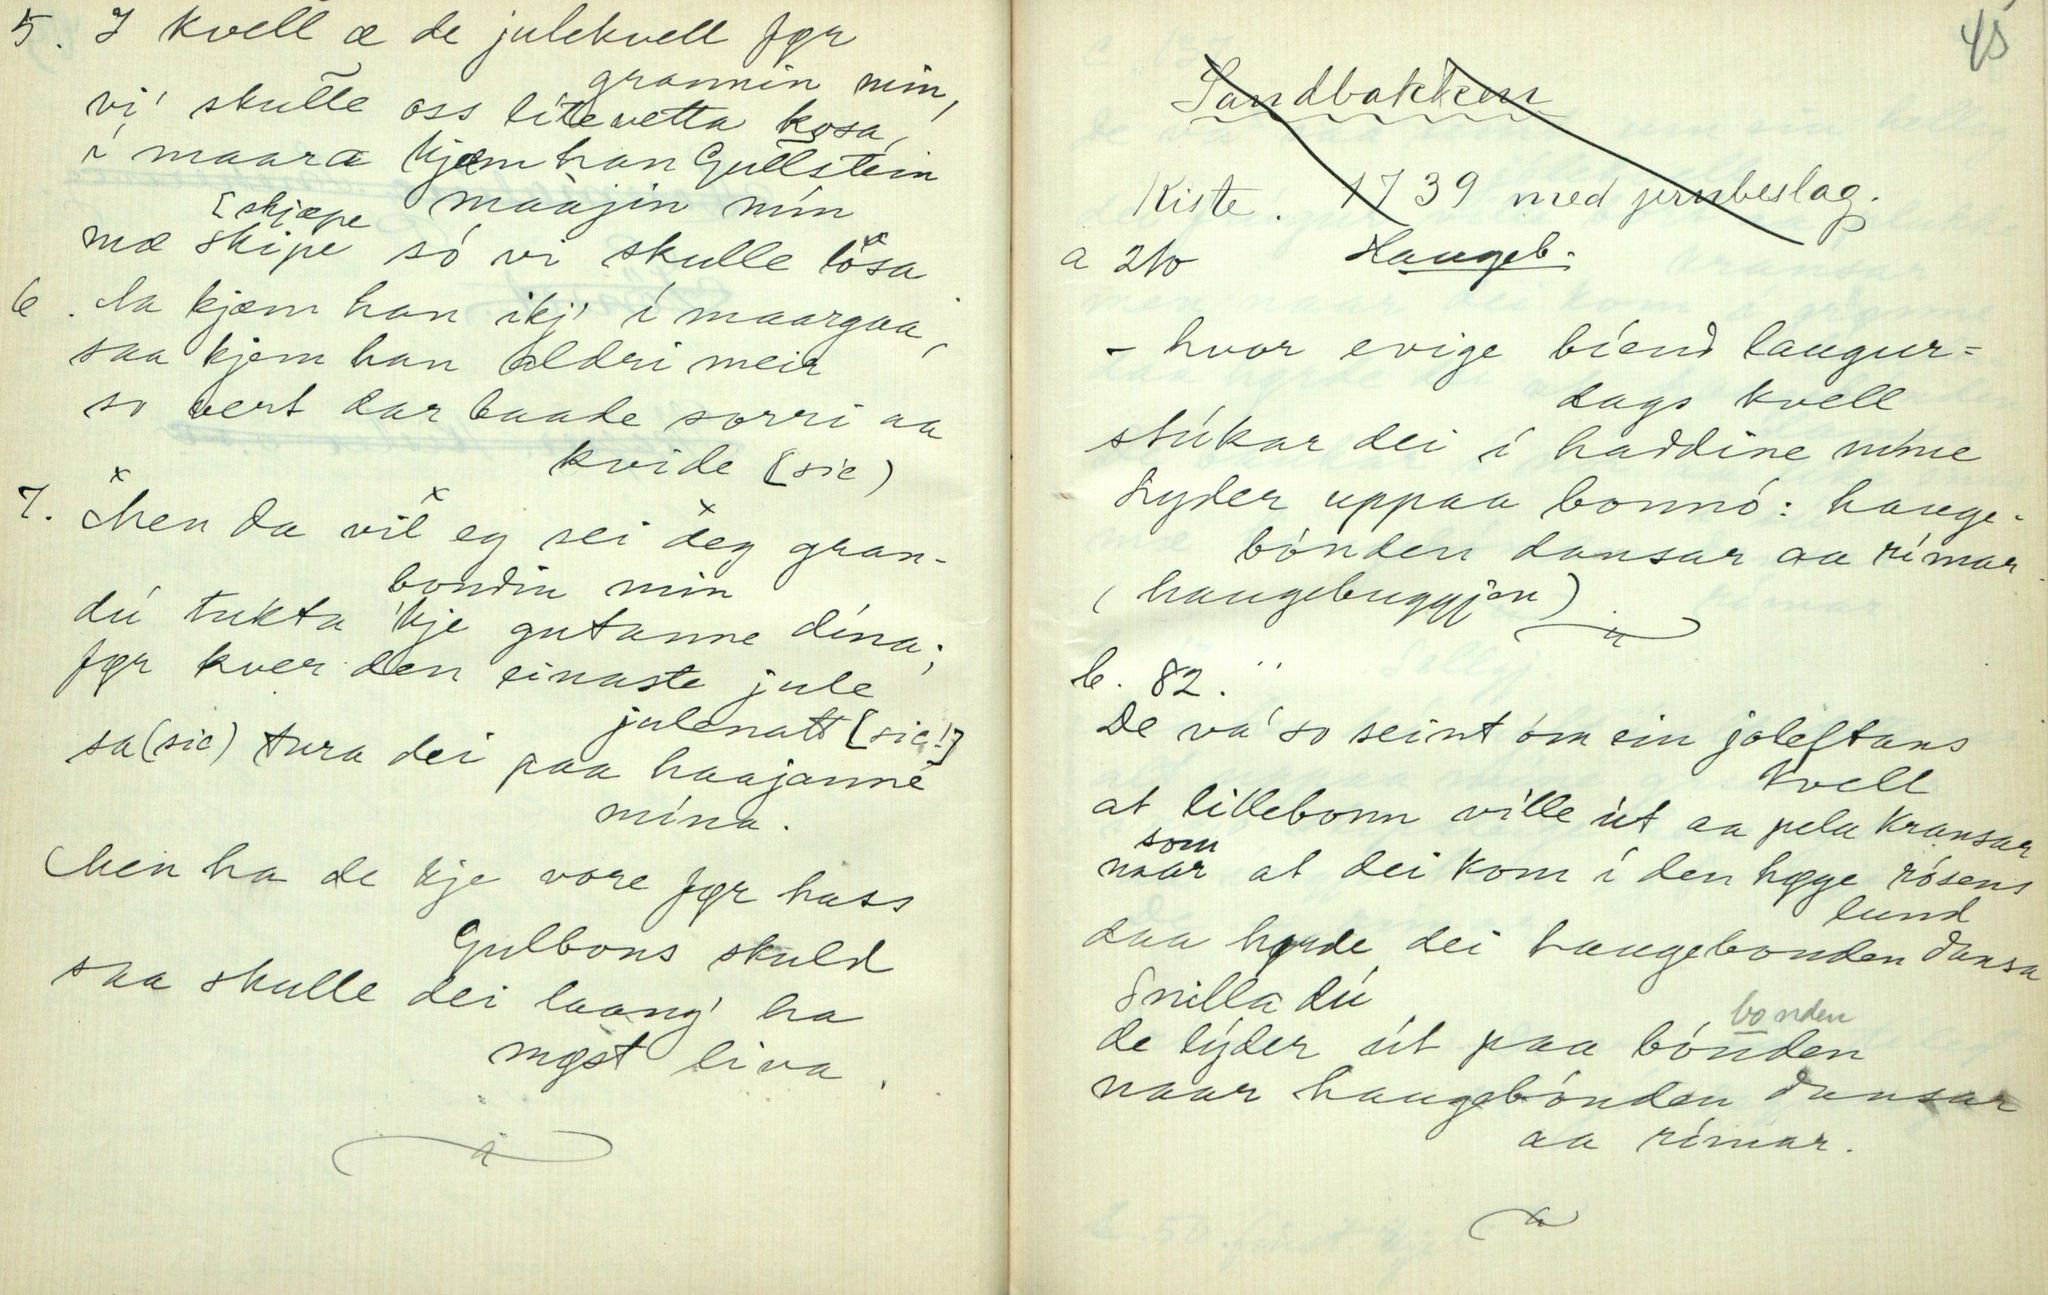 5. I kvell æ de julekvell før
grannin min,
vi skulle oss lítevetta kosa,
í maara kjem han Gullstein
maajin min
[skjæpe
mæ skipe só vi skulle lösa
6. Na kjæm han ikj' í maargaa,
saa kjem han aldri meir
so vert dar baade sorri aa
kvide [sic)
7. Men da vil eg sei deg gran-
bondin min
dú tukta 'kje gutanne dína;
før kver den einaste jule
julenatt [sic!]
sa (sic) tura dei paa haajanne
mína.
Men ha de kje vore før hass
Gulbons skuld
saa skulle dei laang' ha
møst liva.
45
Sandbakken
Kiste. 1739 med jernbeslag.
a 210 Haugeb.
- hvor evige bíend laugur=
dags kvell
stúkar dei í haddine míne
Lyder uppaa bonnó: hauge-
bónden dansar aa rímar
(haugebuggjen).
b. 82.
De va' so seint óm ein joleftans
kvell
at litlebonn ville út aa pela kransar
som
naar at dei kom í den høge rósens
lund
daa hørde dei haugebonden dansa
Snilla dú
bonden
de lýder út paa bónden
naar haugebónden dansar
aa rímar.